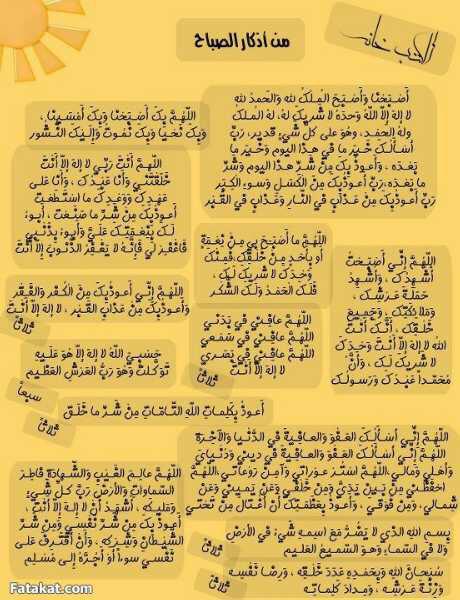 من أذكار الصباح
أَصْبَحْنَا وَأَصْبَحَ المُلْكُ لله وَالحَمدُ لله
لا إلهَ إلاّ اللهُ وَحدَهُ لا شَريكَ لهُ، لهُ الملكُ
ولهُ الحَمْد، وهُوَ على كلّ شَيءٍ قدير، رَبِّ
أسْألُكَ خَيرَ ما في هذا اليوم وَخَيرَ ما
بَعْدَه، وَأَعوذُ بِكَ مِنْ شَرِّ هذا اليوم وَشَرِّ
ما بَعْدَه، رَبِّ أَعوذُبِكَ مِنَ الكَسَلِ وَسوءِ الكِبَر
رَبِّ أَعوذُبِكَ مِنْ عَذَابٍ في النّارِ وَعَذَابٍ في القَبْر
اللّهُمَّ بِكَ أَصْبَحْنا وَبِكَ أَمْسَيْنا،
وَبِكَ نَحْيا وَبِكَ نَموتُ وَإِلَيكَ النُّشُور
اللّهُمَّ أَنْتَ رَبِّي لا إلهَ إلاّ أَنْتَ
خَلَقْتَني وَأَنا عَبْدُكَ، وَأَنا عَلى
عَهْدِكَ وَوَعْدِكَ ما اسْتَطَعْت
أَعوذُبِكَ مِنْ شَرِّ ما صَنَعْت، أَبوءُ
لَكَ بِنِعْمَتِكَ عَلَيَّ وَأَبوءُ بِذَنْبي
فَاغْفِرْ لي فَإِنَّهُ لا يَغْفِرُ الذُّنوبَ إلاّ أَنْتَ
اللّهُمَّ ما أَصْبَحَ بي مِنْ نِعْمَةٍ
أو بِأَحَدٍ مِنْ خَلْقِكَ فَمِنْكَ
وَحْدَكَ لا شَريكَ لَكَ،
فَلَكَ الحَمْدُ وَلَكَ الشُّكر
اللّهُمَّ إِنِّي أَصْبَحْتُ
أُشْهِدُكَ، وَأُشْهِدُ
حَمَلَةَ عَرْشِكَ،
وَمَلائِكَتَكَ، وَجَميعَ
خَلْقِكَ، أَنَّكَ أَنْتَ
اللهُ لا إلهَ إلاّ أَنْتَ وَحْدَكَ
لا شَريكَ لَكَ، وَأَنَّ
مُحَمّداً عَبْدُكَ وَرَسولُكَ
اللّهُمَّ إِنِّي أَعوذُبِكَ مِنَ الكُفْرِ وَالفَقْرِ
وَأَعوذُبِكَ مِنْ عَذَابِ القَبْر، لا إلهَ إلاّ أَنْتَ
ثلاثاً
اللّهُمَّ عافِني في بَدَني
اللّهُمَّ عافِني في سَمْعي
اللّهُمَّ عافِني في بَصَري
لا إلهَ إلاّ أَنْتَ
ثلاثاً
حَسْبِيَ اللهُ لا إلهَ إلاّ هُوَ عَلَيهِ
تَوَكَّلتُ وَهُوَ رَبُّ العَرْشِ العَظيم
سبعاً
أَعوذُ بِكَلِماتِ اللهِ التّامّاتِ مِنْ شَرِّ ما خَلَق
ثلاثاً
اللّهُمَّ إِنِّي أَسْأَلُكَ العَفْوَ وَالعافِيَةَ في الدُّنْيا وَالآخِرَة
اللّهُمَّ إِنِّي أَسْأَلُكَ العَفْوَ وَالعافِيَةَ في ديني وَدُنْيايَ
وَأَهْلي وَمالي، اللّهُمَّ اسْتُرْ عوْراتي وَآمِنْ رَوْعاتي، اللّهُمَّ
احْفَظْني مِن بَينِ يَدَيَّ وَمِن خَلْفي وَعَن يَميني وَعَن
شِمالي، وَمِن فَوْقي، وَأَعوذُ بِعَظَمَتِكَ أَن أُغْتالَ مِن تَحْتي
اللّهُمَّ عالِمَ الغَيْبِ وَالشَّهادَةِ فاطِرَ
السّماواتِ وَالأرْضِ رَبَّ كلِّ شَيءٍ
وَمَليكَه، أَشْهَدُ أَنْ لا إِلهَ إِلاّ أَنْت،
أَعوذُ بِكَ مِنْ شَرِّ نَفْسي وَمِنْ شَرِّ
الشَّيْطانِ وَشِرْكِه، وَأَنْ أَقْتَرِفَ عَلى
نَفْسي سوءاً أَوْ أَجُرَّهُ إِلى مُسْلِم
بِسمِ اللهِ الذي لا يَضُرُّ مَعَ اسمِهِ شَيءٌ في الأرْضِ
وَلا في السّماءِ وَهوَ السّميعُ العَليم
ثلاثاً
سُبْحانَ اللهِ وَبِحَمْدِهِ عَدَدَ خَلْقِه، وَرِضا نَفْسِه
وَزِنَةَ عَرْشِه، وَمِدادَ كَلِماتِه
ثلاثاً
Fatakat.com